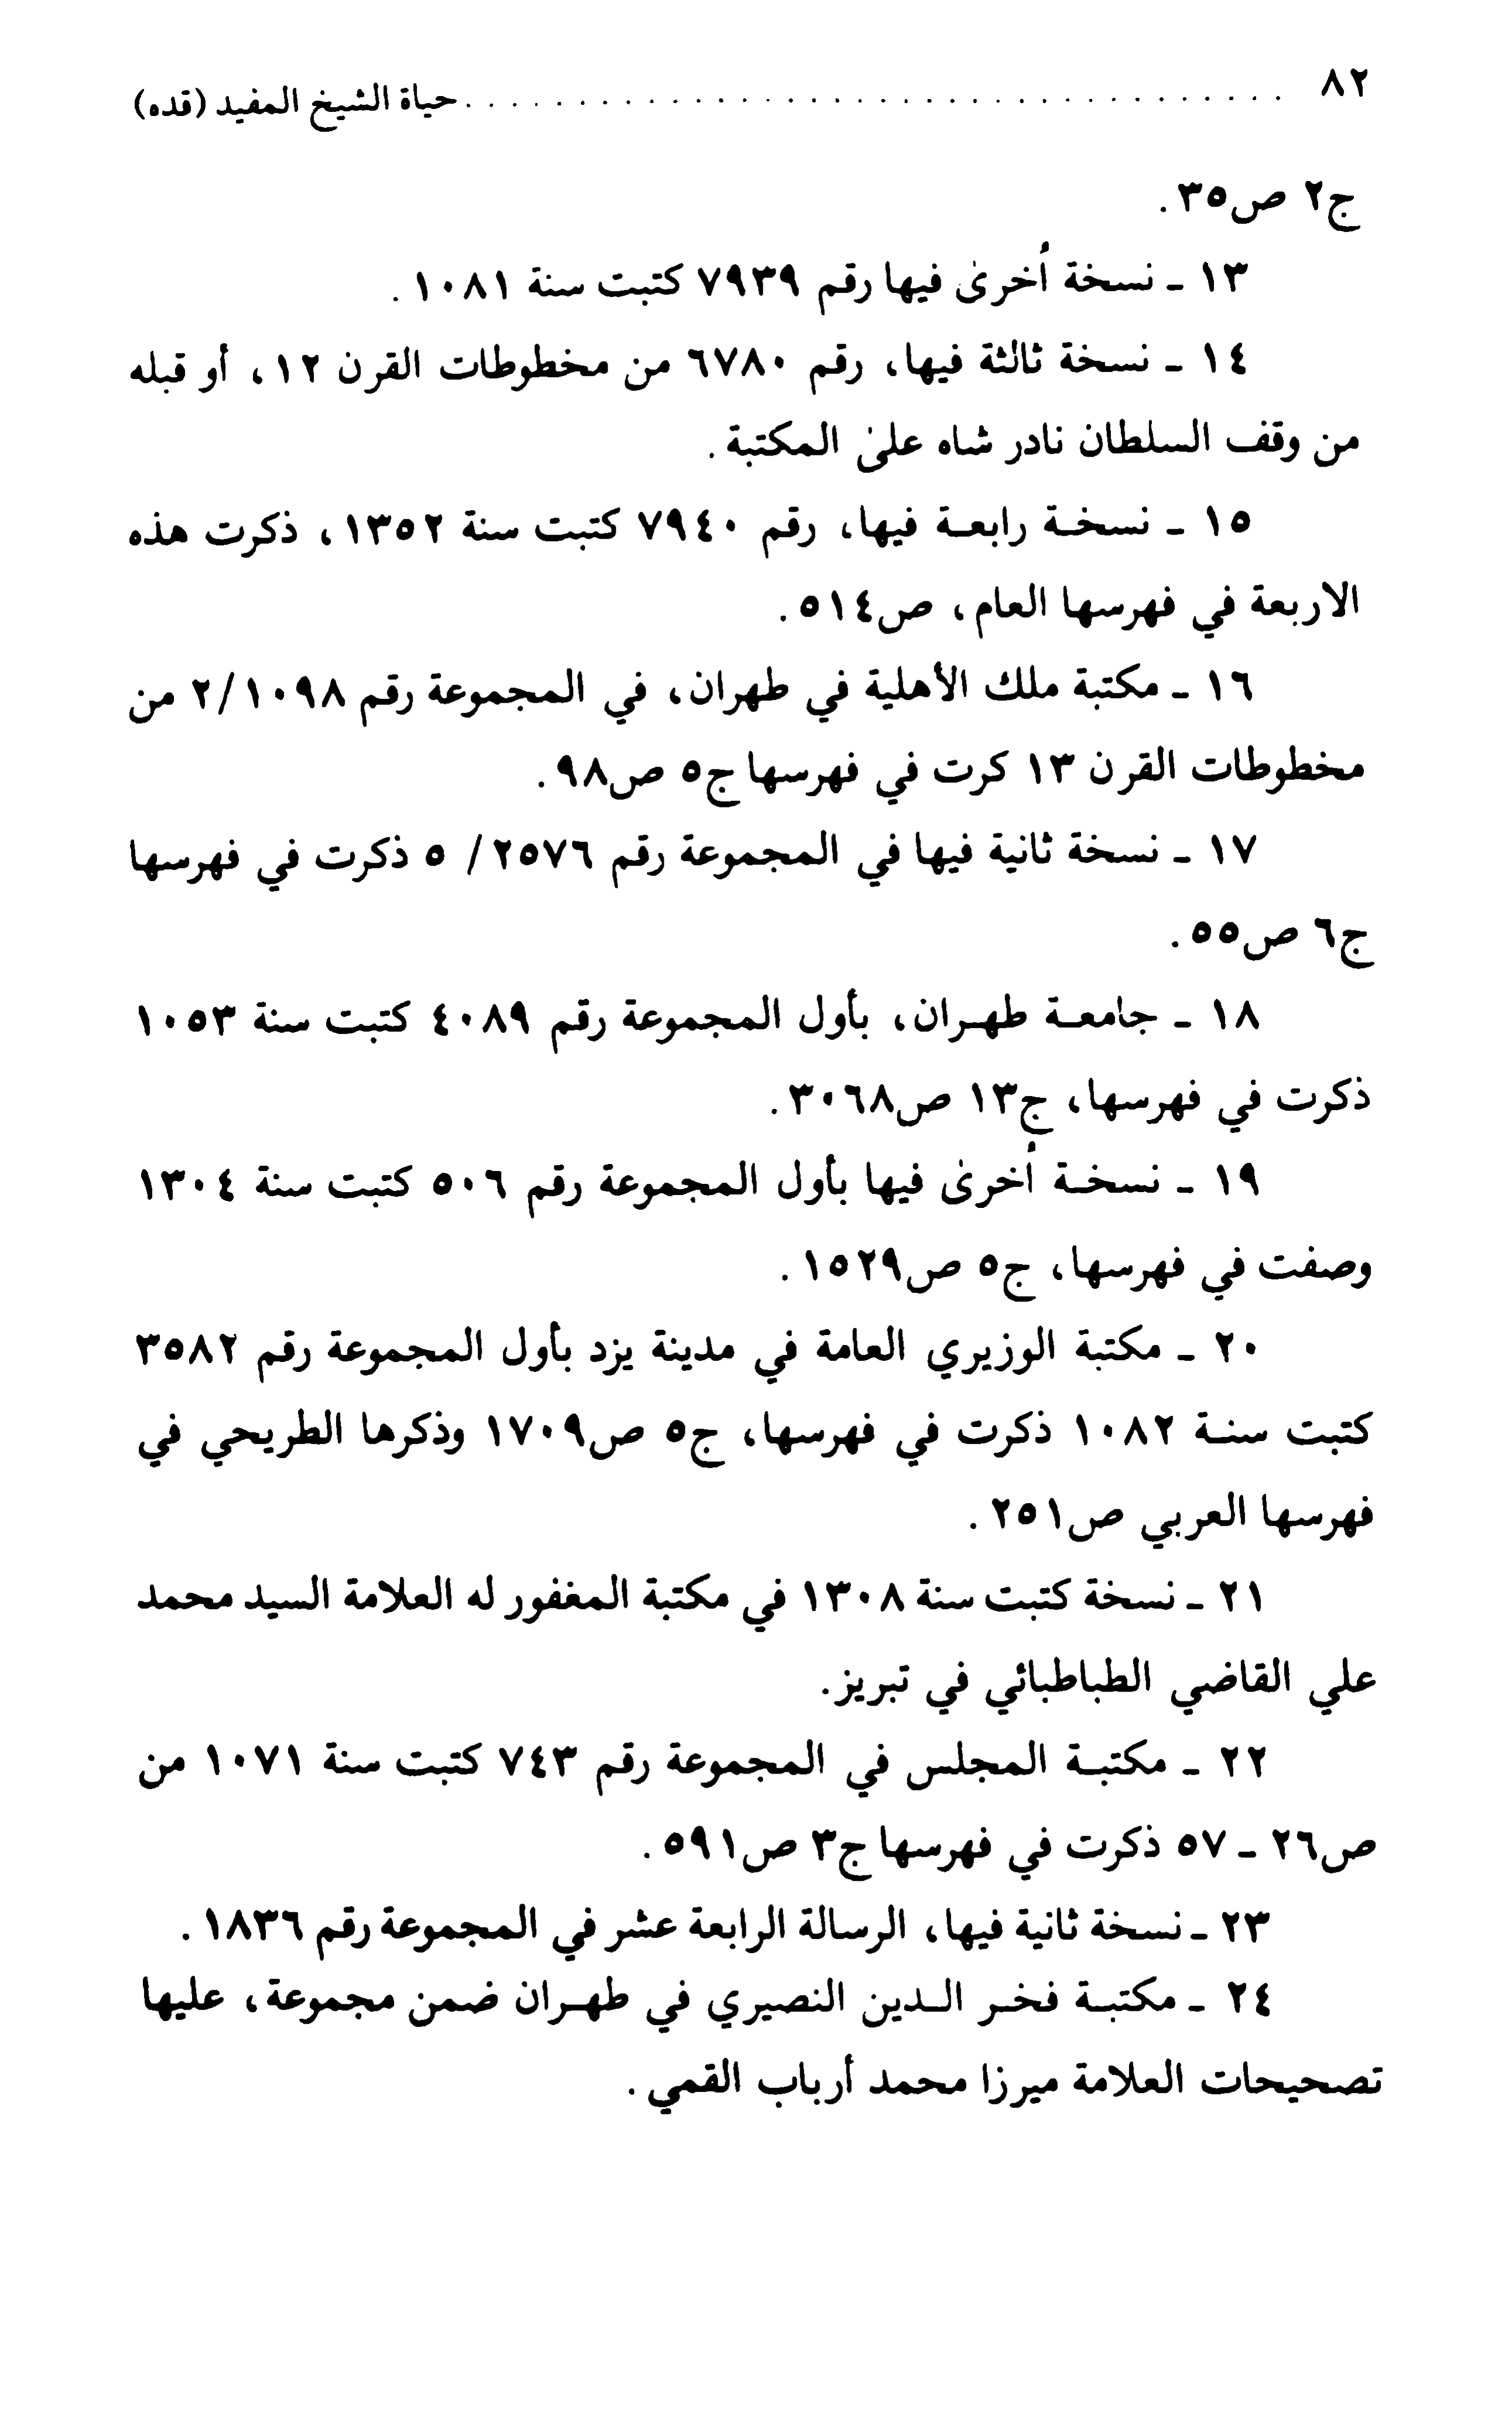 ٨٢ ........................................ حياة الشيخ المفيد (قده)
ج٢ ص٣٥.
١٣ ـ نسخة أُخرىٰ فيها رقم ٧٩٣٩ كتبت سنة ١٠٨١.
١٤ ـ نسخة ثالثة فيها، رقم ٦٧٨٠ من مخطوطات القرن ١٢، أو قبله
من وقف السلطان نادر شاه علىٰ المكتبة.
١٥ ـ نسخة رابعة فيها، رقم ٧٩٤٠ كتبت سنة ١٣٥٢، ذكرت هذه
الاربعة في فهرسها العام، ص٥١٤.
١٦ ـ مكتبة ملك الأهلية في طهران، في المجموعة رقم ٢/١٠٩٨ من
مخطوطات القرن ١٣ كرت في فهرسها ج٥ ص٩٨.
١٧ ـ نسخة ثانية فيها في المجموعة رقم ٢٥٧٦/ ٥ ذكرت في فهرسها
ج٦ ص٥٥.
١٨ ـ جامعة طهران، بأول المجموعة رقم ٤٠٨٩ كتبت سنة ١٠٥٣
ذكرت في فهرسها، ج١٣ ص٣٠٦٨.
١٩ ـ نسخة أُخرىٰ فيها بأول المجموعة رقم ٥٠٦ كتبت سنة ١٣٠٤
وصفت في فهرسها، ج٥ ص١٥٢٩.
٢٠ ـ مكتبة الوزيري العامة في مدينة يزد بأول المجموعة رقم ٣٥٨٢
كتبت سنة ١٠٨٢ ذكرت في فهرسها، ج٥ ص١٧٠٩ وذكرها الطريحي في
فهرسها العربي ص٢٥١.
٢١ ـ نسخة كتبت سنة ١٣٠٨ في مكتبة المغفور له العلامة السيد محمد
علي القاضي الطباطبائي في تبريز.
٢٢ ـ مكتبة المجلس في المجموعة رقم ٧٤٣ كتبت سنة ١٠٧١ من
ص٢٦ ـ ٥٧ ذكرت في فهرسها ج٣ ص٥٩١.
٢٣ ـ نسخة ثانية فيها، الرسالة الرابعة عشر في المجموعة رقم ١٨٣٦.
٢٤ ـ مكتبة فخر الدين النصيري في طهران ضمن مجموعة، عليها
تصحيحات العلامة ميرزا محمد أرباب القمي.